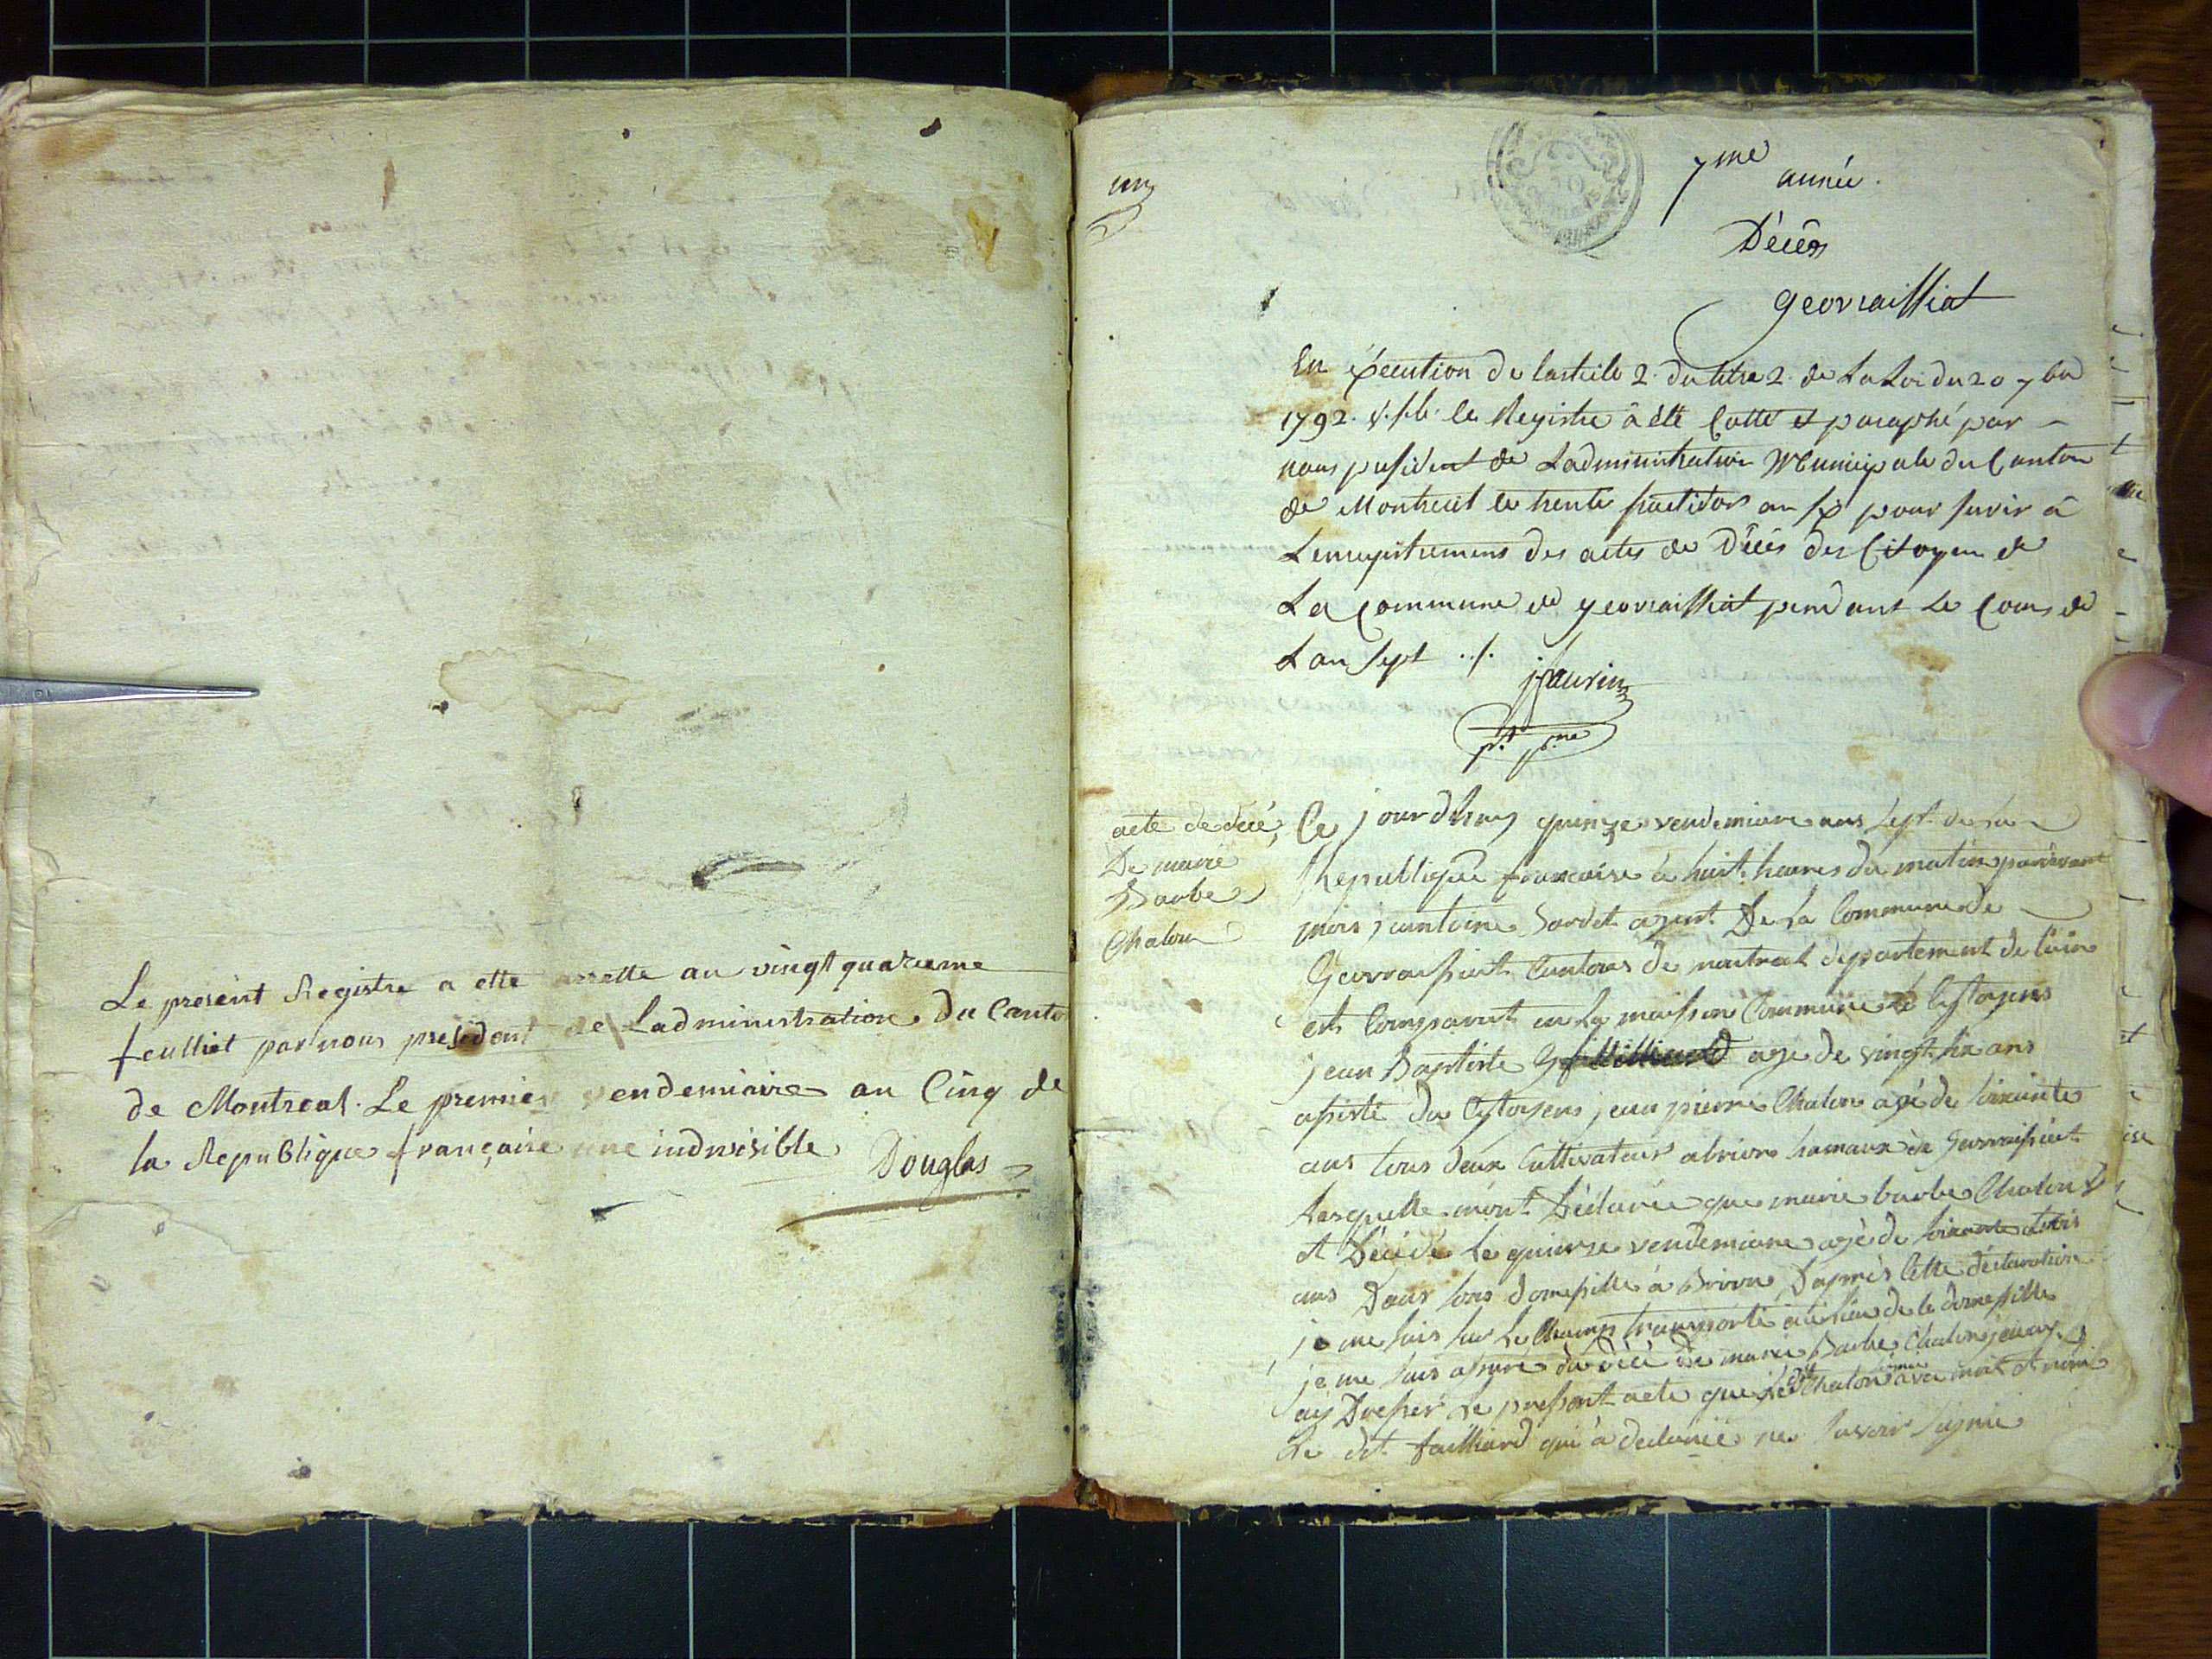 Le present Registre a ette arrette au vingt quatrieme
feulliet par nous president de Ladministration du Canto
de Montreal. Le premier vendemiaire an Cinq de
la Republique française une indivisible Douglas
un
7me année.
Décès
geovraissiat
En éxécution de larticle 2. du titre 2. de La Loi du 20 7bre
1792. v.st. le Registre à été Cotté et paraphé par
nous president de Ladministration Municipale du Canton
de Montreal le trente fructidor an six pour servir à
Lenregistrement des actes de Décès des Citoyens de
La Commune de geovraissiat pendant Le Cours de
Lan sept ./.
jaurin
pt
acte de décé
De marie
Barbe
Chalon
Ce jourdhuy quinze vendemiaire ans sept de la
Republique francaise à huit heures du matin pardevant
mois antoine Sordet agent De La Commune de
Gevraissiat Cantons de montreal département de lain
est Comparut en la maison Commune le Cytoyens
jean Baptiste age de vingt six ans
assisté du Cytoyens jean pierre Chalon agé de soixante
ans tous deux Cultivateurs hamaux de Gevraissiat
Lesquelle mont Déclarée que marie barbe Chalon
et Décédé le quinze vendemiaire agé de soixante
ans Dans sons domesille à D'après Cette déclaration
je me suis sur Le Champ transporté au lieu de le domesille
je me suis assuré du décé de marie Barbe Chalon jen
ay Dressér Le present acte que Le dt Chalon signé avec moit et
Le dit failliard qui à declarée ne savoir signié